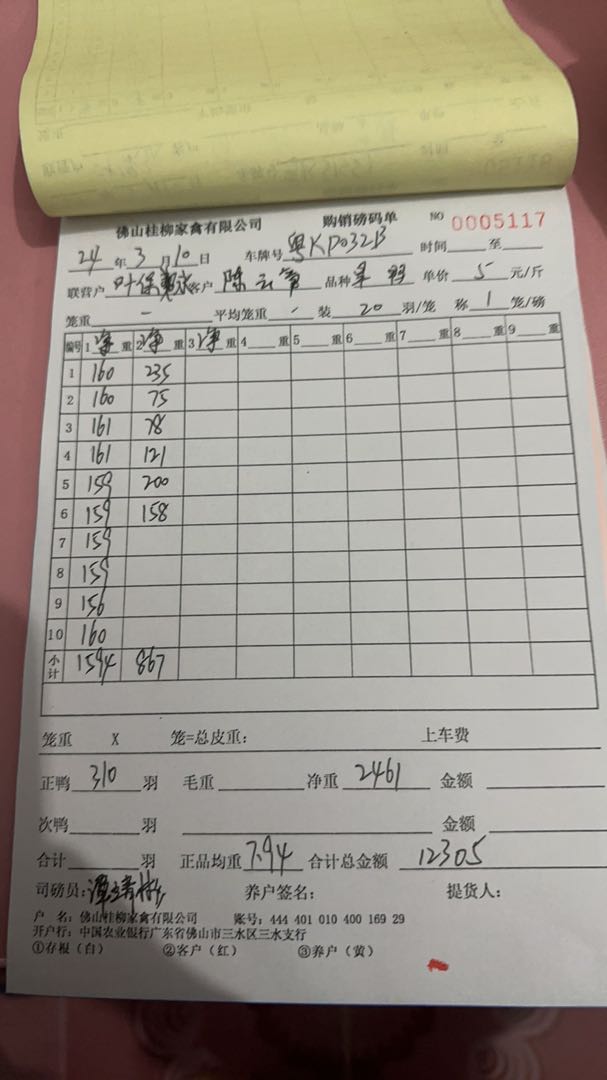 佛山桂柳家禽有限公司 购销磅码单 NO 0005117
24年3月10日 车牌号粤KD032B 时间 至
联营户叶保 客户陈云 品种 羽 单价 5 元/斤
笼重 - 平均笼重 - 装 20 羽/笼 称 1 笼/磅
编号 1净重 2净重 3净重 4 重 5 重 6 重 7 重 8 重 9 重
1 160 235
2 160 75
3 161 78
4 161 121
5 159 200
6 159 158
7 159
8 159
9 156
10 160
小计 1594 867
笼重 X 笼=总皮重: 上车费
正鸭 310 羽 毛重 净重 2461 金额
次鸭 羽 金额
合计 羽 正品均重 7.94 合计总金额 12305
司磅员:谭 养户签名: 提货人:
户 名:佛山桂柳家禽有限公司 账号:444 401 010 400 169 29
开户行:中国农业银行广东省佛山市三水区三水支行
①存根(白) ②客户(红) ③养户(黄)